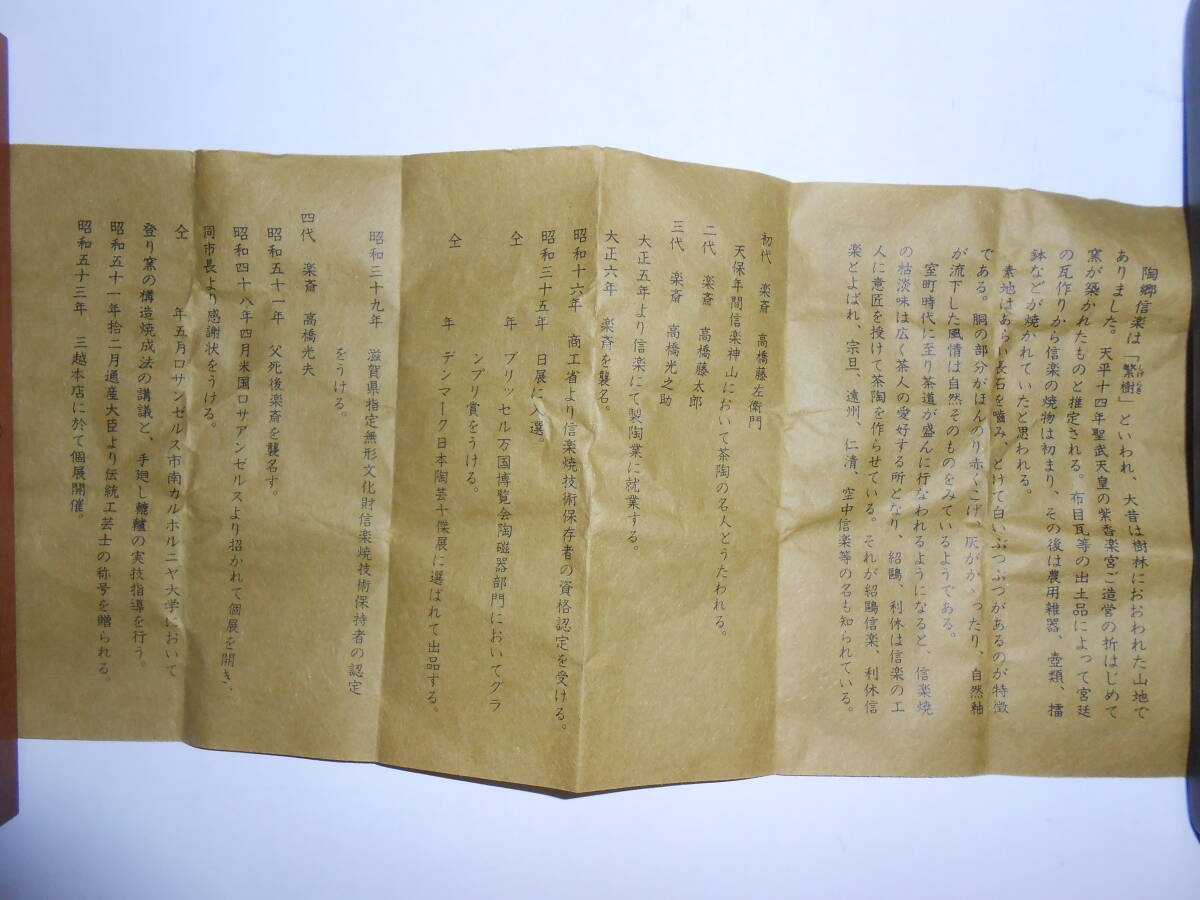 陶郷信楽は「繁樹」といわれ、大昔は樹林におおわれた山地で
しげるき
ありました。天平十四年聖武天皇の紫香楽宮ご造営の折はじめて
窯が築かれたものと推定される。布目瓦等の出土品によって宮廷
の瓦作りから信楽の焼物は初まり、その後は農用雑器、壺類、擂
鉢などが焼かれていたと思われる。
素地はあらい長石を噛み、とけて白いぶつぶつがあるのが特徴
である。胴の部分がほんのり赤くこげ、灰がかゝったり、自然釉
が流下した風情は自然そのものをみているようである。
室町時代に至り茶道が盛んに行なわれるようになると、信楽焼
の枯淡味は広く茶人の愛好する所となり、紹鷗、利休は信楽の工
人に意匠を授けて茶陶を作らせている。それが紹鷗信楽、利休信
楽とよばれ、宗旦、遠州、仁清、空中信楽等の名も知られている。
初代 楽斎 高橋藤左衛門
天保年間信楽神山において茶陶の名人とうたわれる。
二代 楽斎 高橋藤太郎
三代 楽斎 高橋光之助
大正五年より信楽にて製陶業に就業する。
大正六年 楽斎を襲名。
昭和十六年 商工省より信楽焼技術保存者の資格認定を受ける。
昭和三十五年 日展に入選。
仝 年 ブリッセル万国博覧会陶磁器部門においてグラ
ンプリ賞をうける。
仝 年 デンマーク日本陶芸十傑展に選ばれて出品する。
昭和三十九年 滋賀県指定無形文化財信楽焼技術保持者の認定
をうける。
四代 楽斎 高橋光夫
昭和五十一年 父死後楽斎を襲名す。
昭和四十八年四月米国ロサアンゼルスより招かれて個展を開き、
同市長より感謝状をうける。
仝 年五月ロサンゼルス市南カルホルニヤ大学において
登り窯の構造焼成法の講議と、手廻し轆轤の実技指導を行う。
昭和五十一年拾二月通産大臣より伝統工芸士の称号を贈られる。
昭和五十三年 三越本店に於て個展開催。